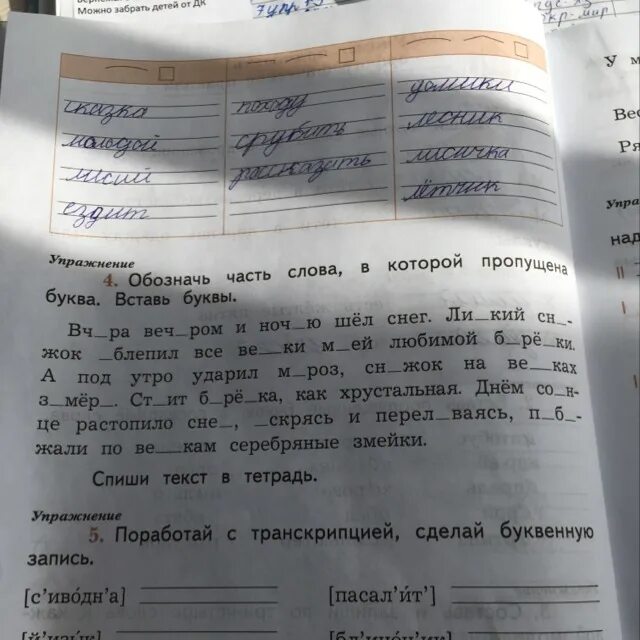 Можно забрать детей от ДК
7 упр
кр-мир
У м
сказка походу домики
молодой срубить лесник
лисий рассказать лисичка
ездит лётчик
Вес
Ря
Упра
над
II
I
Упражнение
4. Обозначь часть слова, в которой пропущена
буква. Вставь буквы.
Вч_ра веч_ром и ноч_ю шёл снег. Ли_кий сн_-
жок _блепил все ве_ки м_ей любимой б_рё_ки.
А под утро ударил м_роз, сн_жок на ве_ках
з_мёр_. Ст_ит б_рё_ка, как хрустальная. Днём со_н-
це растопило сне_, _скрясь и перел_ваясь, п_б_-
жали по ве_кам серебряные змейки.
Спиши текст в тетрадь.
Упражнение
5. Поработай с транскрипцией, сделай буквенную
запись.
[с'иво́дн'а] [пасал'и́т']